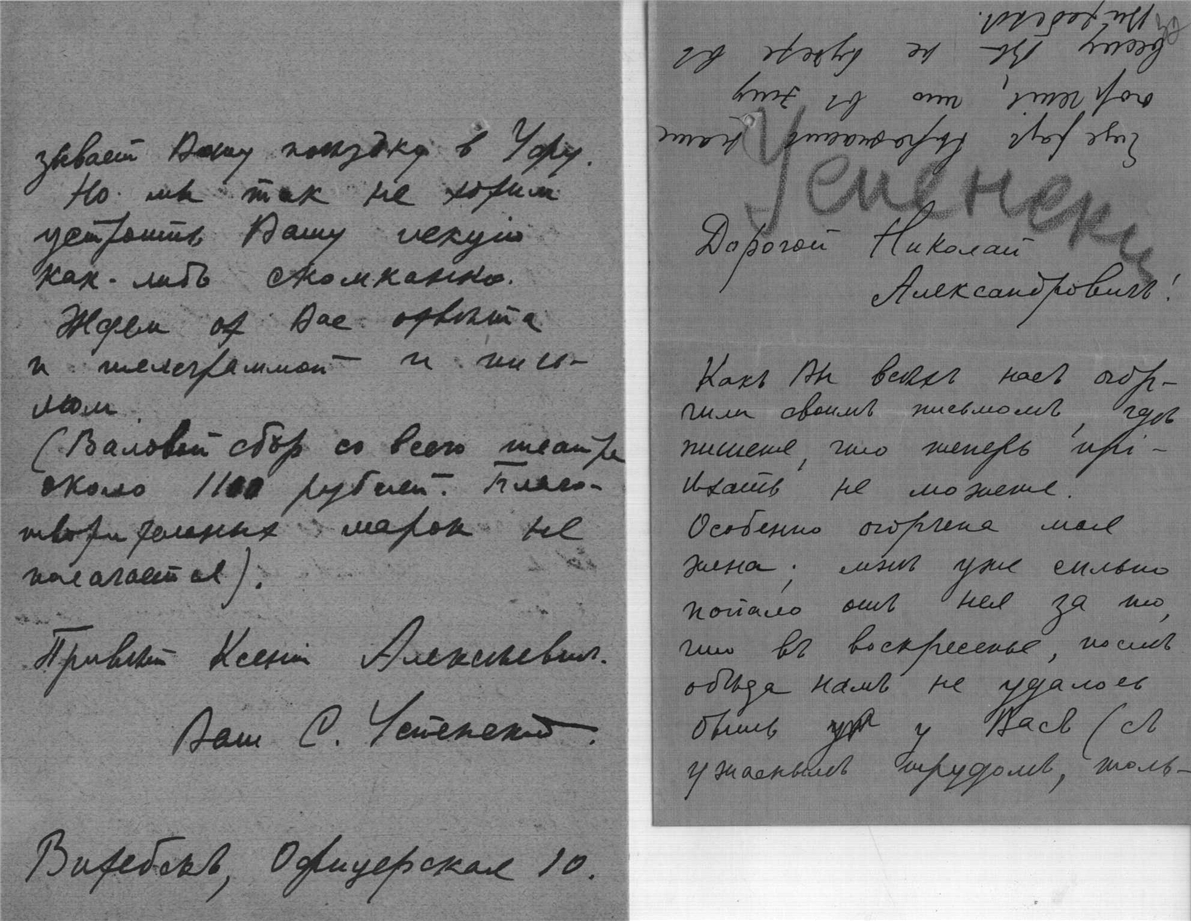 зывает Вашу поездку в Уфу.
Но мы так не хотим
устроить Вашу лекцию
как-либо скомканно.
Ждем от Вас отвѣта
и телеграммой и пись-
мом.
(Валовой сбор со всего театра
около 1100 рублей. Благо-
творительных марок не
полагается).
Привѣт Ксении Алексѣевнѣ.
Ваш С. Успенский.
Витебскъ, Офицерская 10.
Еще разъ выражаемъ наше
огорченіе, что въ эту
весну Вы не будете въ
Витебскѣ.
Успенски
Дорогой Николай
Александровичъ!
Какъ Вы всѣхъ насъ огор-
чили своимъ письмомъ, гдѣ
пишете, что теперь прі-
ѣхать не можете.
Особенно огорчена моя
жена; мнѣ уже сильно
попало отъ нея за то,
что въ воскресенье, послѣ
обѣда намъ не удалось
быть у Васъ (съ
ужаснымъ трудомъ, толь-